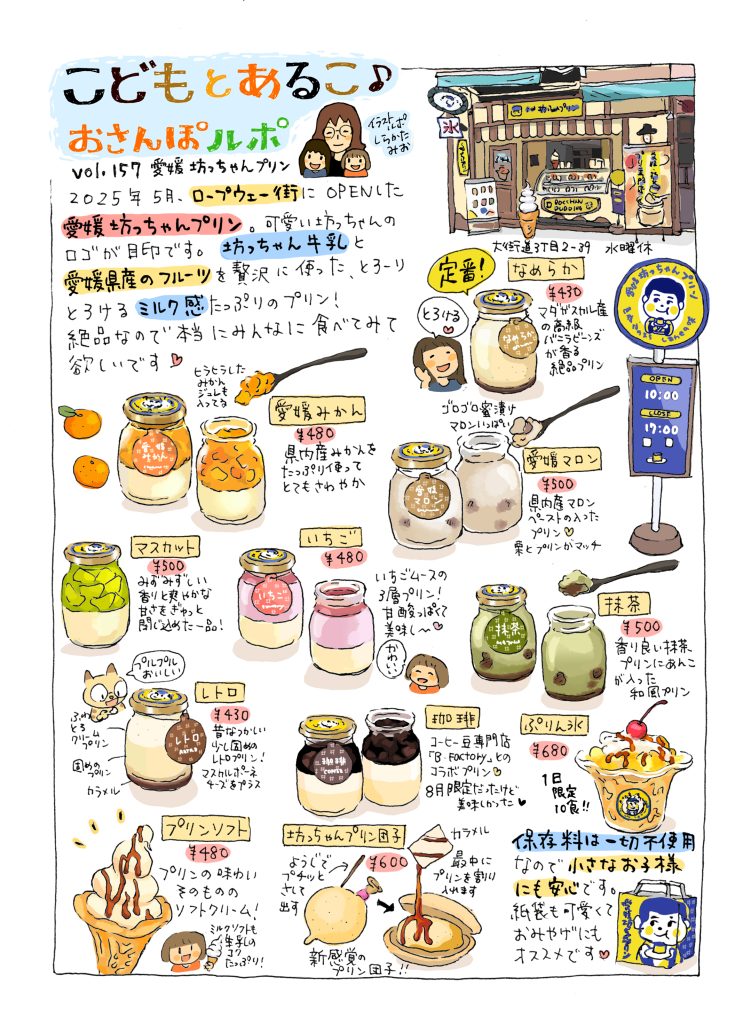 こどもとあるこ♪
おさんぽルポ
vol.157 愛媛 坊っちゃんプリン
イラストルポ
しらかた
みお
2025年5月、ロープウェー街にOPENした
愛媛坊っちゃんプリン。可愛い坊っちゃんの
ロゴが目印です。坊っちゃん牛乳と
愛媛県産のフルーツを贅沢に使った、とろ〜り
とろけるミルク感たっぷりのプリン!
絶品なので本当にみんなに食べてみて
欲しいです♥
氷
坊っちゃんプリン
BOCCHAN
PUDDING
大街道3丁目2-39 水曜休
愛媛坊っちゃんプリン
OPEN
10:00
CLOSE
17:00
定番!
なめらか
¥430
とろける
なめらか
マダガスカル産
の高級
バニラビーンズ
が香る
絶品プリン
とろとろした
みかん
ジュレも
入ってる
愛媛みかん
¥480
愛媛
みかん
県内産みかんを
たっぷり使って
とてもさわやか
ゴロゴロ蜜漬け
マロンいっぱい
愛媛マロン
¥500
愛媛
マロン
県内産マロン
ペーストの入った
プリン♡
栗とプリンがマッチ
マスカット
¥500
みずみずしい
香りと爽やかな
甘さをぎゅっと
閉じ込めた一品!
いちご
¥480
いちご
いちごムースの
3層プリン!
甘酸っぱくて
美味し〜♡
かわいい
抹茶
¥500
抹茶
香り良い抹茶
プリンにあんこ
が入った
和風プリン
プルプル
おいしい
レトロ
¥430
レトロ
RETRO
ふわ
とろ
クリーム
プリン
固めの
プリン
カラメル
昔なつかしい
少し固めの
レトロプリン!
マスカルポーネ
チーズをプラス
珈琲
珈琲
COFFEE
コーヒー豆専門店
「B・Factory」との
コラボプリン♡
8月限定だったけど
美味しかった♥
ぷりん氷
¥680
1日
限定
10食!!
プリンソフト
¥480
プリンの味わい
そのものの
ソフトクリーム!
ミルクソフトも
牛乳の
コク
たっぷり!
坊っちゃんプリン団子
¥600
ようじで
プチッと
さして
出す
カラメル
最中に
プリンを割り
入れます
新感覚の
プリン団子!!
保存料は一切不使用
なので小さなお子様
にも安心です。
紙袋も可愛くて
おみやげにも
オススメです♥
愛媛坊っちゃんプリン